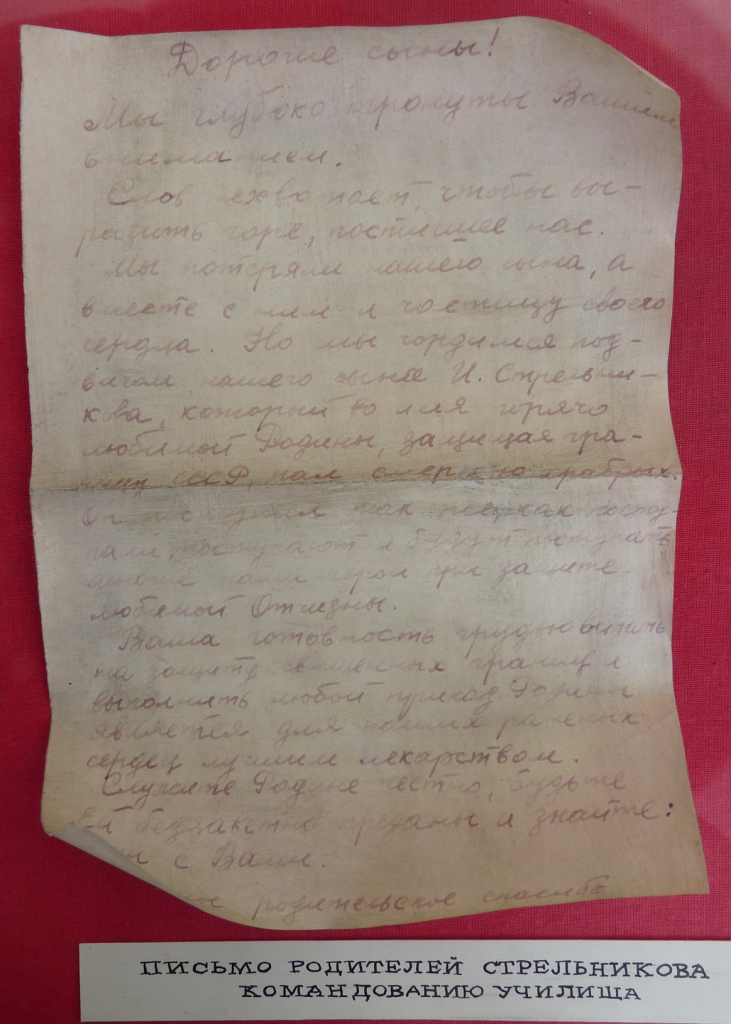 Дорогие сыны!
Мы глубоко тронуты Вашим
вниманием.
Слов не хватает, чтобы вы-
разить горе, постигшее нас.
Мы потеряли нашего сына, а
вместе с ним и частицу своего
сердца. Но мы гордимся под-
вигом нашего сына И. Стрельни-
кова, который во имя горячо
любимой Родины, защищая гра-
ницу СССР, пал смертью храбрых.
Он поступил так же, как посту-
пали, поступают и будут поступать
многие наши герои при защите
любимой Отчизны.
Ваша готовность грудью встать
на защиту священных границ и
выполнить любой приказ Родины
является для наших раненых
сердец лучшим лекарством.
Служите Родине честно, будьте
Ей беззаветно преданы и знайте:
с Вами.
родительское спасибо
ПИСЬМО РОДИТЕЛЕЙ СТРЕЛЬНИКОВА
КОМАНДОВАНИЮ УЧИЛИЩА